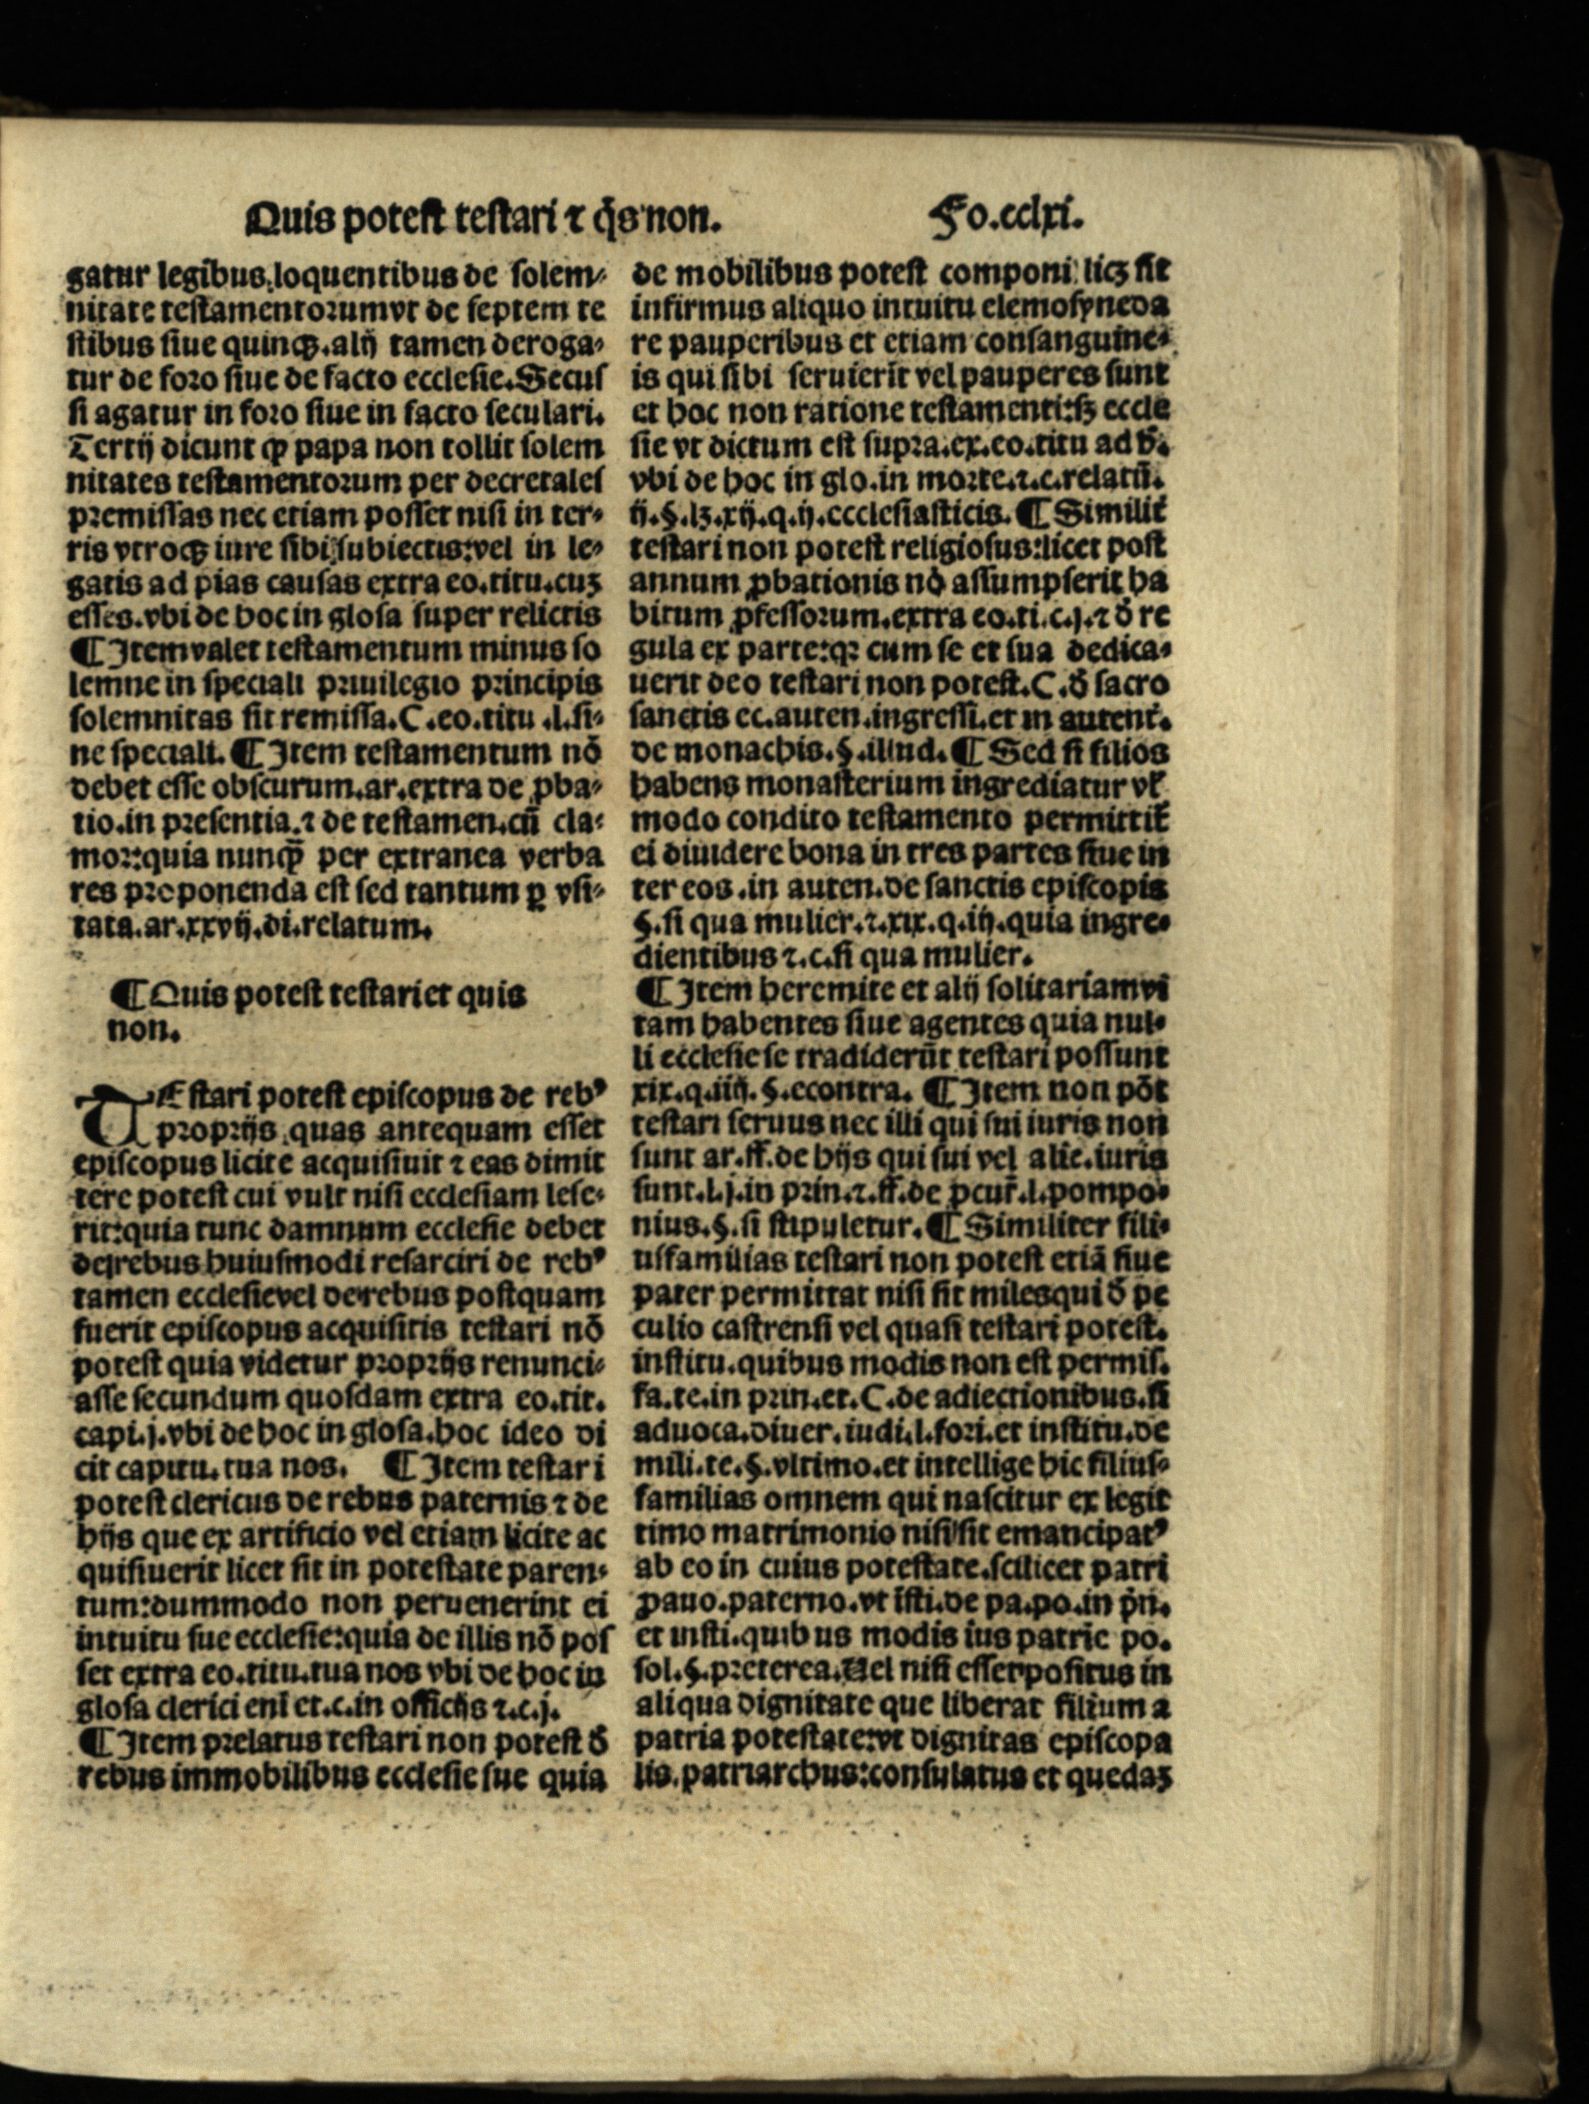 Quis potest testari ⁊ q̄s non.
Fo.cclxi.
gatur legibus loquentibus de solem⸗
nitate testamentorum vt de septem te
stibus siue quinqꝫ. alij tamen deroga⸗
tur de foro siue de facto ecclesie. Secus
si agatur in foro siue in facto seculari.
Tertij dicunt ꝙ papa non tollit solem
nitates testamentorum per decretales
premissas nec etiam posset nisi in ter⸗
ris vtroqꝫ iure sibi subiectis: vel in le⸗
gatis ad pias causas extra eo. titu. cuꝫ
esses. vbi de hoc in glosa super relictis
¶ Item valet testamentum minus so
lemne in speciali priuilegio principis
solemnitas sit remissa. C. eo. titu .l. si⸗
ne speciali. ¶ Item testamentum nō
debet esse obscurum. ar. extra de ꝓba⸗
tio. in presentia. ⁊ de testamen. cū cla⸗
mor: quia nunqꝫ̄ per extranea verba
res proponenda est sed tantum ꝑ vsi⸗
tata. ar. xxvij. di. relatum.
¶ Quis potest testari et quis
non.
TEstari potest episcopus de rebꝰ
proprijs quas antequam esset
episcopus licite acquisiuit ⁊ eas dimit
tere potest cui vult nisi ecclesiam lese⸗
rit: quia tunc damnum ecclesie debet
de rebus huiusmodi resarciri de rebꝰ
tamen ecclesie vel de rebus postquam
fuerit episcopus acquisitis testari nō
potest quia videtur proprijs renunci⸗
asse secundum quosdam extra eo. tit.
capi. j. vbi de hoc in glosa. hoc ideo di
cit capitu. tua nos. ¶ Item testari
potest clericus de rebus paternis ⁊ de
hijs que ex artificio vel etiam licite ac
quisiuerit licet sit in potestate paren⸗
tum: dummodo non peruenerint ei
intuitu sue ecclesie: quia de illis nō pos
set extra eo. titu. tua nos vbi de hoc in
glosa clerici enī et. c. in officijs ⁊. c. j.
¶ Item prelatus testari non potest ð
rebus immobilibus ecclesie sue quia
de mobilibus potest componi licꝫ sit
infirmus aliquo intuitu elemosyne da
re pauperibus et etiam consanguine⸗
is qui sibi seruierīt vel pauperes sunt
et hoc non ratione testamenti: sꝫ eccle
sie vt dictum est supra. ex. eo. titu ad h̄.
vbi de hoc in glo. in morte. ⁊. c. relatū.
ij. §. lꝫ. xij. q. ij. ecclesiasticis. ¶ Similit̄
testari non potest religiosus: licet post
annum ꝓbationis nō assumpserit ha
bitum ꝓfessorum. extra eo. ti. c. j. ⁊ ð re
gula ex parte: qꝛ cum se et sua dedica⸗
uerit deo testari non potest. C. ð sacro
sanctis ec. auten. ingressi. et in autent̄.
de monachis. §. illud. ¶ Sed si filios
habens monasterium ingrediatur vl̄
modo condito testamento permittit̄
ei diuidere bona in tres partes siue in
ter eos. in auten. de sanctis episcopis
§. si qua mulier. ⁊. xix. q. iij. quia ingre⸗
dientibus ⁊. c. si qua mulier.
¶ Item heremite et alij solitariam vi
tam habentes siue agentes quia nul⸗
li ecclesie se tradiderūt testari possunt
xix. q. iiij. §. econtra. ¶ Item non pōt
testari seruus nec illi qui sui iuris non
sunt ar. ff. de hijs qui sui vel alie. iuris
sunt. l. j. in prin. ⁊. ff. de ꝓcur̄. l. pompo⸗
nius. §. si stipuletur. ¶ Similiter fili⸗
usfamilias testari non potest etiā siue
pater permittat nisi sit miles qui ð pe
culio castrensi vel quasi testari potest.
institu. quibus modis non est permis.
fa. te. in prin. et. C. de adiectionibus. si
aduoca. diuer. iudi. l. fori. et institu. de
mili. te. §. vltimo. et intellige hic filius⸗
familias omnem qui nascitur ex legit
timo matrimonio nisi sit emancipatꝰ
ab eo in cuius potestate. scilicet patri
ꝓauo. paterno. vt īsti. de pa. po. in p̄ri.
et insti. quibus modis ius patrie po.
sol. §. preterea. Uel nisi esset positus in
aliqua dignitate que liberat filium a
patria potestate: vt dignitas episcopa
lis. patriarchus: consulatus et quedaꝫ